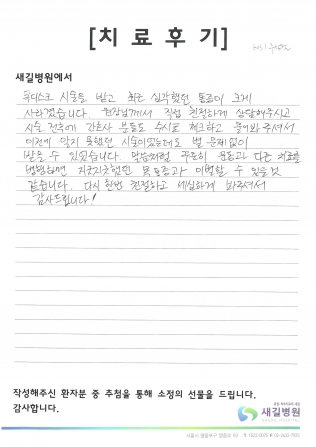 [치료후기]
새길병원에서
목디스크 시술을 받고 최근 심각했던 통증이 크게
사라졌습니다. 원장님께서 직접 친절하게 상담해주시고
시술 전후에 간호사 분들도 수시로 체크하고 물어봐 주셔서
이전에 맞지 못했던 시술이었는데도 별 문제없이
받을 수 있었습니다. 말씀처럼 꾸준히 운동과 다른 치료를
병행하면 지긋지긋했던 목통증과 이별할 수 있을 것
같습니다. 다시 한번 친절하고 세심하게 봐주셔서
감사드립니다!
작성해주신 환자분 중 추첨을 통해 소정의 선물을 드립니다.
감사합니다.
새길병원
SAEGIL HOSPITAL